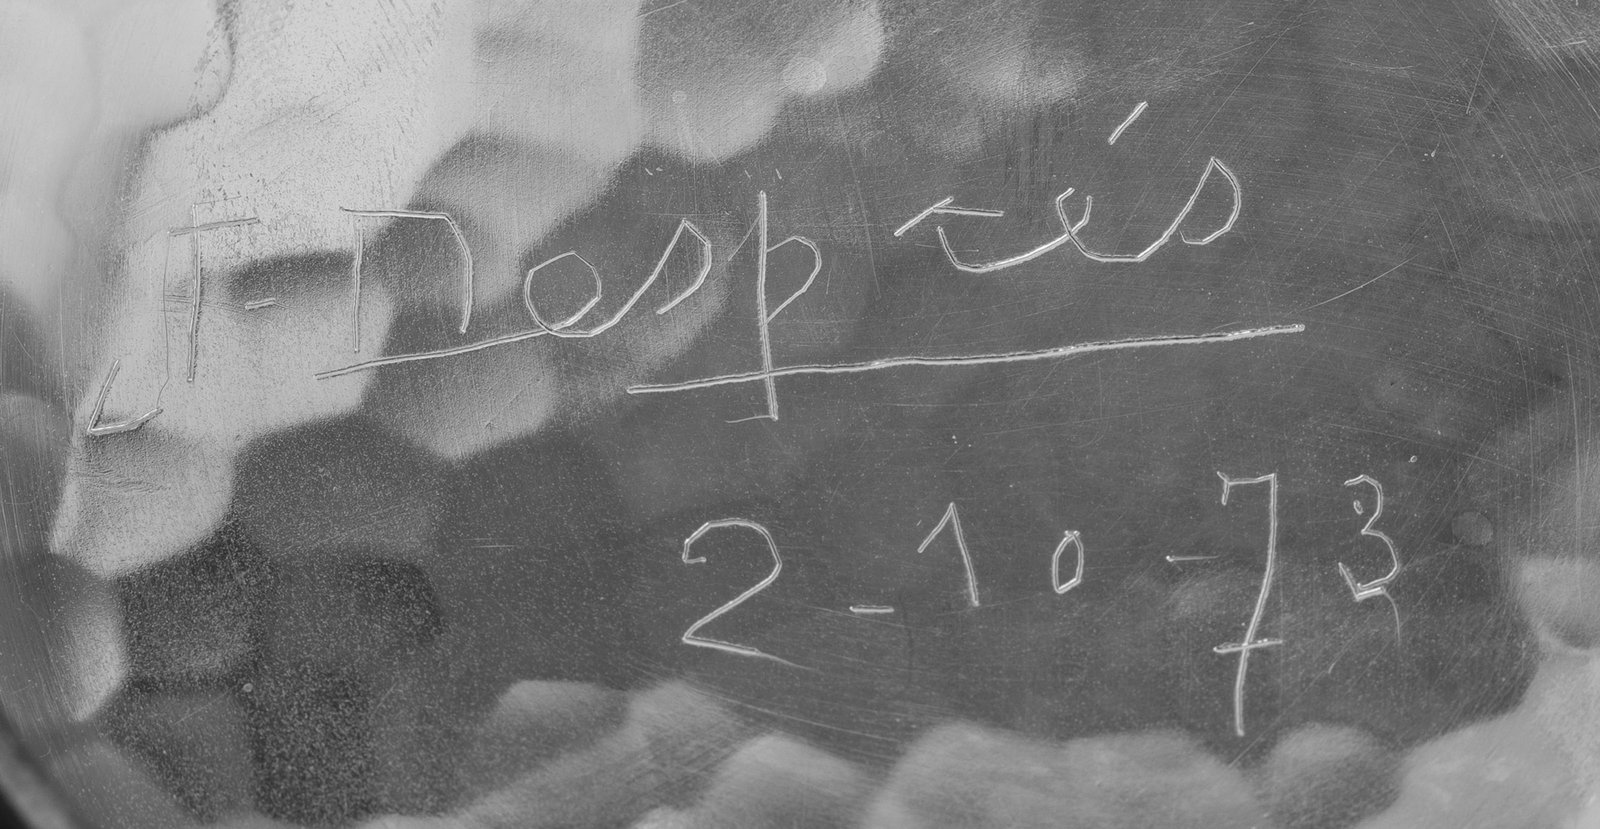 J-Després
2-10-73